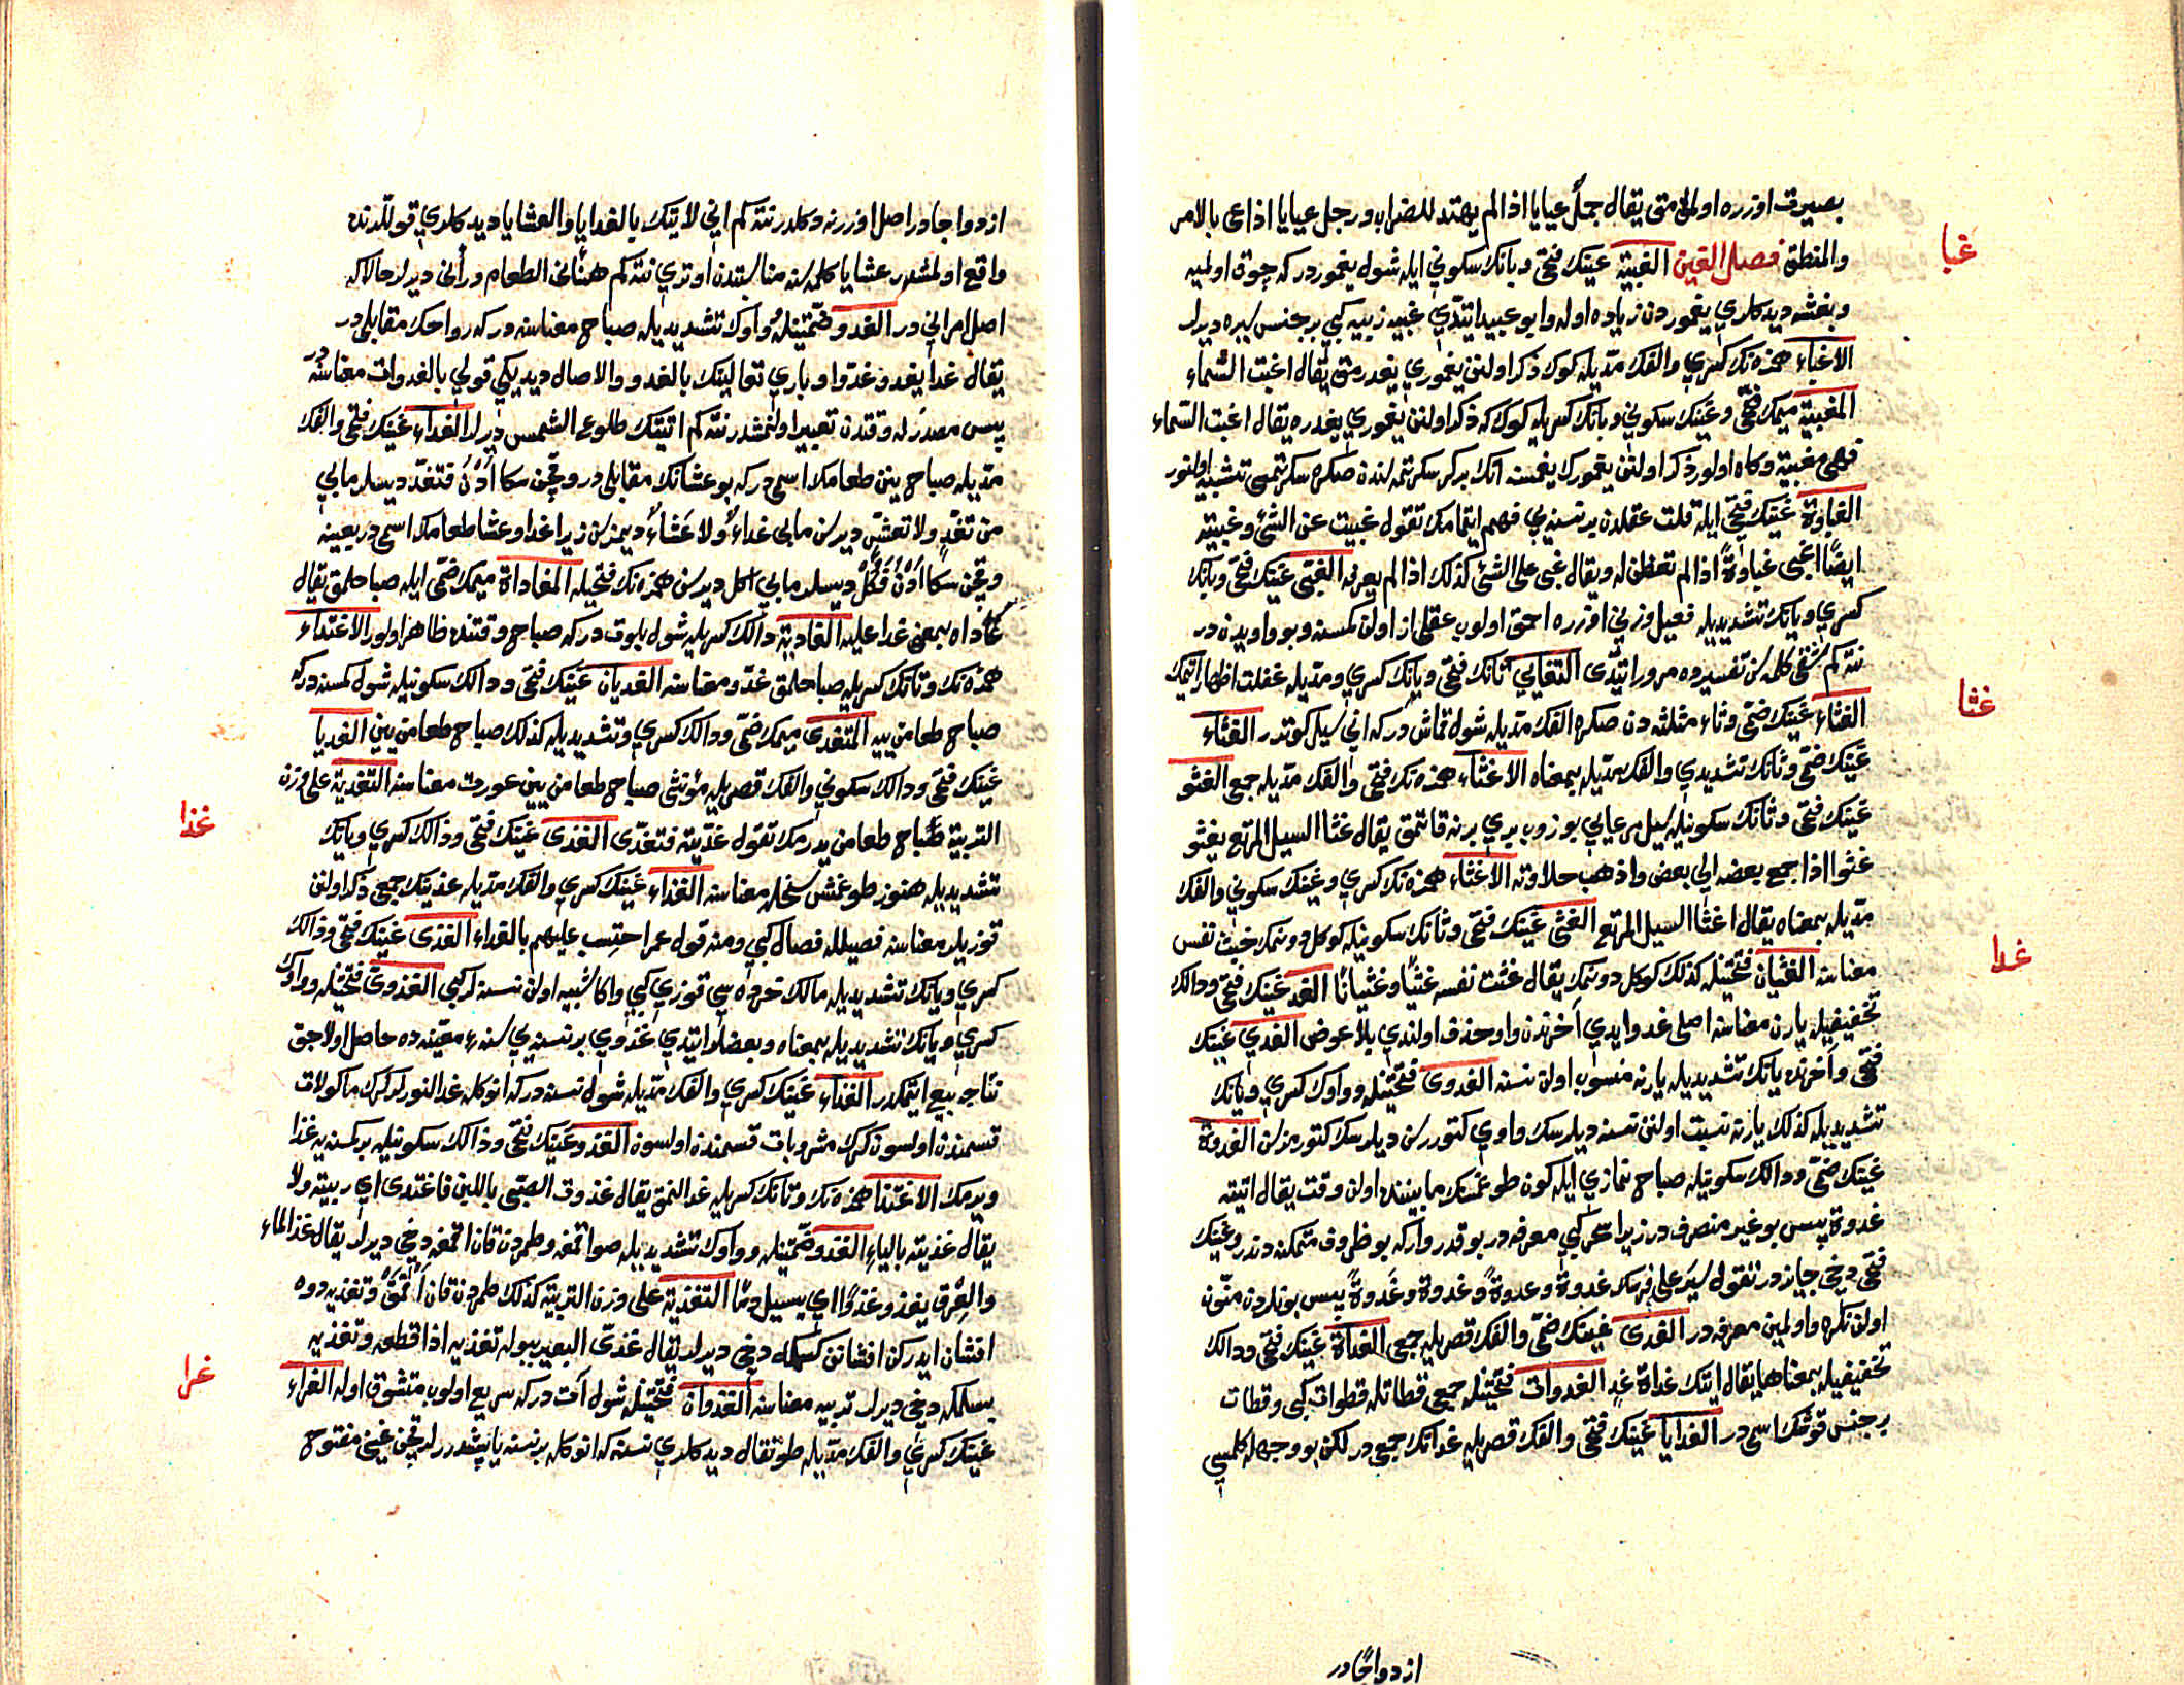 بصیرت اوزره اولمق متی یقال جمل عیایا اذا لم یهتد للضراب ورجل عیایا اذا عی بالامر
غبا
والمنطق فصل الغین الغبیة غینك فتحی و بانك سکونی ایله شول یغموردر که چوق اولمیه
وبغشه دیدکلری یغموردن زیاده اوله وابو عبید ایتدی غبیه زبیه کبی بر جنس یره دیرلر
الاغباء همزه نك کسری والفك مدیله کوك ذکر اولنن یغموری یغدرمق یقال اغبت السماء
المغبیة میمك فتحی وغینك سکونی و بانك کسریله کوك که ذکر اولنن یغموری یغدره یقال اغبت السماء
فهی مغبیة وکاه اولور ذکر اولنن یغمورك یغمسنه اتك بر کز سکرتمه لندن صکره سکرتمسی تشبیه اولنور
الغباوة غینك فتحی ایله قلت عقلدن بر نسنه یی فهم ایتمامك تقول غبیت عن الشئ وغبیته
ایضًا اغبی غباوةً اذا لم تفطن له ویقال غبی علی الشئ کذلك اذا لم یعرفه الغبی غینك فتحی وبانك
کسری ویانك تشدیدیله فعیل وزنی اوزره احمق اولوب عقلی از اولن کمسنه وبو واویدن در
نته کم شقی کلمه سن تفسیرده مرور ایتدی التغابی تانك فتحی و یانك کسری ومدیله غفلت اظهار اتیمك
غثا
الغثاء غینك ضمی وثاء مثلثه دن صکره الفك مدیله شول قماش در که انی سیل کوتدر الغثاء
غینك ضمی وثانك تشدیدی والفك مدیله بمعناه الاغثاء همزه نك فتحی والفك مدیله جمع الغثو
غینك فتحی وثانك سکونیله سیل مرعایی بوزوب بری برنه قاتمق یقال غثا السیل المرتع یغثو
غثوا اذا جمع بعضه الی بعض واذهب حلاوته الاغثاء همزه نك کسری وغینك سکونی والفك
مدیله بمعناه یقال اغثا السیل المرتع الغثی غینك فتحی وثانك سکونیله کوکل دونمك خبث نفس
غدا
معناسنه الغثیان فتحتینله کذلك کوکل دونمك یقال غثت نفسه غثیًا وغثیانًا الغد غینك فتحی ودالك
تخفیفیله یارن معناسنه اصلی غدو ایدی آخرندن واو حذف اولندی بلا عوض الغدی غینك
فتحی وآخرنده یانك تشدیدیله یارنه منسوب اولن نسنه الغدوی فتحتینله وواوك کسری ویانك
تشدیدیله کذلك یارنه نسبت اولنن نسنه دیلرسك واوی کتوررسن دیلرسك کتورمزسن الغدوة
غینك ضمی ودالك سکونیله صباح نمازی ایله کون طوغمنك مابیننده اولن وقت یقال اتیته
غدوة پس بو غیر منصرف در زیرا سحر کبی معرفه در بو قدر وار که بو ظروف متمکنه دندر وغینك
فتحی دخی جایز در تقول سیر علی فرسك غدوة وغدوةً وغدوة وغدوةً پس بونلردن منون
اولن نکره واولمین معرفه در الغدی غینك ضمی والفك قصریله جمعی الغداة غینك فتحی ودالك
تخفیفیله بمعناها یقال اتیتك غداة غدٍ الغدوات فتحتینله جمعی قطاتله قطوات کبی وقطات
بر جنس قوشك اسمی در الغدایا غینك فتحی والفك قصریله غداتك جمعی در لکن بو وجهله کلمسی
ازدواجادر
ازدواجادر اصل اوزرنه دکلدر نته کم انی لاتیك بالغدایا والعشایا دید کلری قوللرنده
واقع اولمشدر عشایا کلمه سنه مناسبتدن اوتری نته کم هنأنی الطعام ومرأنی دیرلر حالا که
اصل امرأنی در الغدو ضمتینله وواوك تشدیدیله صباح معناسنه در که رواحك مقابلی در
یقال غدا یغدو غدوا وباری تعالینك بالغدو والاصال دیدیکی قولی بالغدوات معناسنه در
پس مصدرله وقتدن تعبیر اولنمشدر نته کم اتیتك طلوع الشمس دیرلر الغداء غینك فتحی والفك
مدیله صباح یینن طعامك اسمی در که بو عشانك مقابلی در وقچن سکا اُدْنُ فتغدّ دیسلر مابی
من تغدٍّ ولا تعشٍّ دیرسن مابی غداءٌ ولا عشاءٌ دیمزسن زیرا غدا وعشا طعامك اسمی در بعینه
وقچن سکا اُدْنُ فَکُلْ دیسلر مابی اکل دیرسن همزه نك فتحیله المغاداة میمك ضمی ایله صباحلمق یقال
غاداه بمعنی غدا علیه الغادیة دالك کسریله شول بلوت در که صباح وقتنده ظاهر اولور الاغتداء
همزه نك وتانك کسریله صباحلمق غدو معناسنه الغدیان غینك فتحی ودالك سکونیله شول کمسنه در که
صباح طعامن ییه المتغدی میمك ضمی ودالك کسری وتشدیدیله کذلك صباح طعامن یین الغدیا
غینك فتحی ودالك سکونی والفك قصریله مؤنثی صباح طعامن یین عورت معناسنه التغدیة علی وزن
غذا
التربیة صباح طعامن یدرمك تقول غدّیته فتغدّی الغذی غینك فتحی وذالك کسری ویانك
تشدیدیله هنوز طوغمش سخله معناسنه الغذاء غینك کسری والفك مدیله غذینك جمعی ذکر اولنن
قوزیلر معناسنه فصیلله فصال کبی ومنه قول عمر احتسب علیهم بالغذاء الغذی غینك فتحی وذالك
کسری ویانك تشدیدیله مالك خرده سی قوزی کبی واکا شبیه اولن نسنه لر کبی الغذوی فتحتینله وواوك
کسری ویانك تشدیدیله بمعناه وبعضلر ایتدی غذوی بر نسنه یی سنهء معینه ده حاصل اولاجق
نتاجه بیع ایتمکدر الغذاء غینك کسری والفك مدیله شول نسنه در که انوکله غدالنورلر کرك ماکولات
قسمندن اولسون کرك مشروبات قسمندن اولسون الغذو غینك فتحی وذالك سکونیله بر کمسنه یه غذا
ویرمك الاغتذا همزه نك وتانك کسریله غدالنمق یقال غذوت الصبی باللبن فاغتذی ای ربیته ولا
یقال غذیته بالیاء الغذو ضمتینله وواوك تشدیدیله صو اقمغه وطمردن قان اقمغه دخی دیرلر یقال غذا الماء
والعِرق یغذو غذوًا ای یسیل دمًا التغذیة علی وزن التربیة کذلك طمردن قان آقمق وتغذیه دوه
افشان ایدرکن افشانن کسمکه دخی دیرلر یقال غذّی البعیر ببوله تغذیه اذا قطعه وتغذیه
غرا
بسلمکه دخی دیرلر تربیه معناسنه الغذوان فتحتینله شول آت در که سریع اولوب متشوق اوله الغراء
غینك کسری والفك مدیله طوتقال دیدکلری نسنه که انوکله بر نسنه یاپشدررلر قچن غینی مفتوح